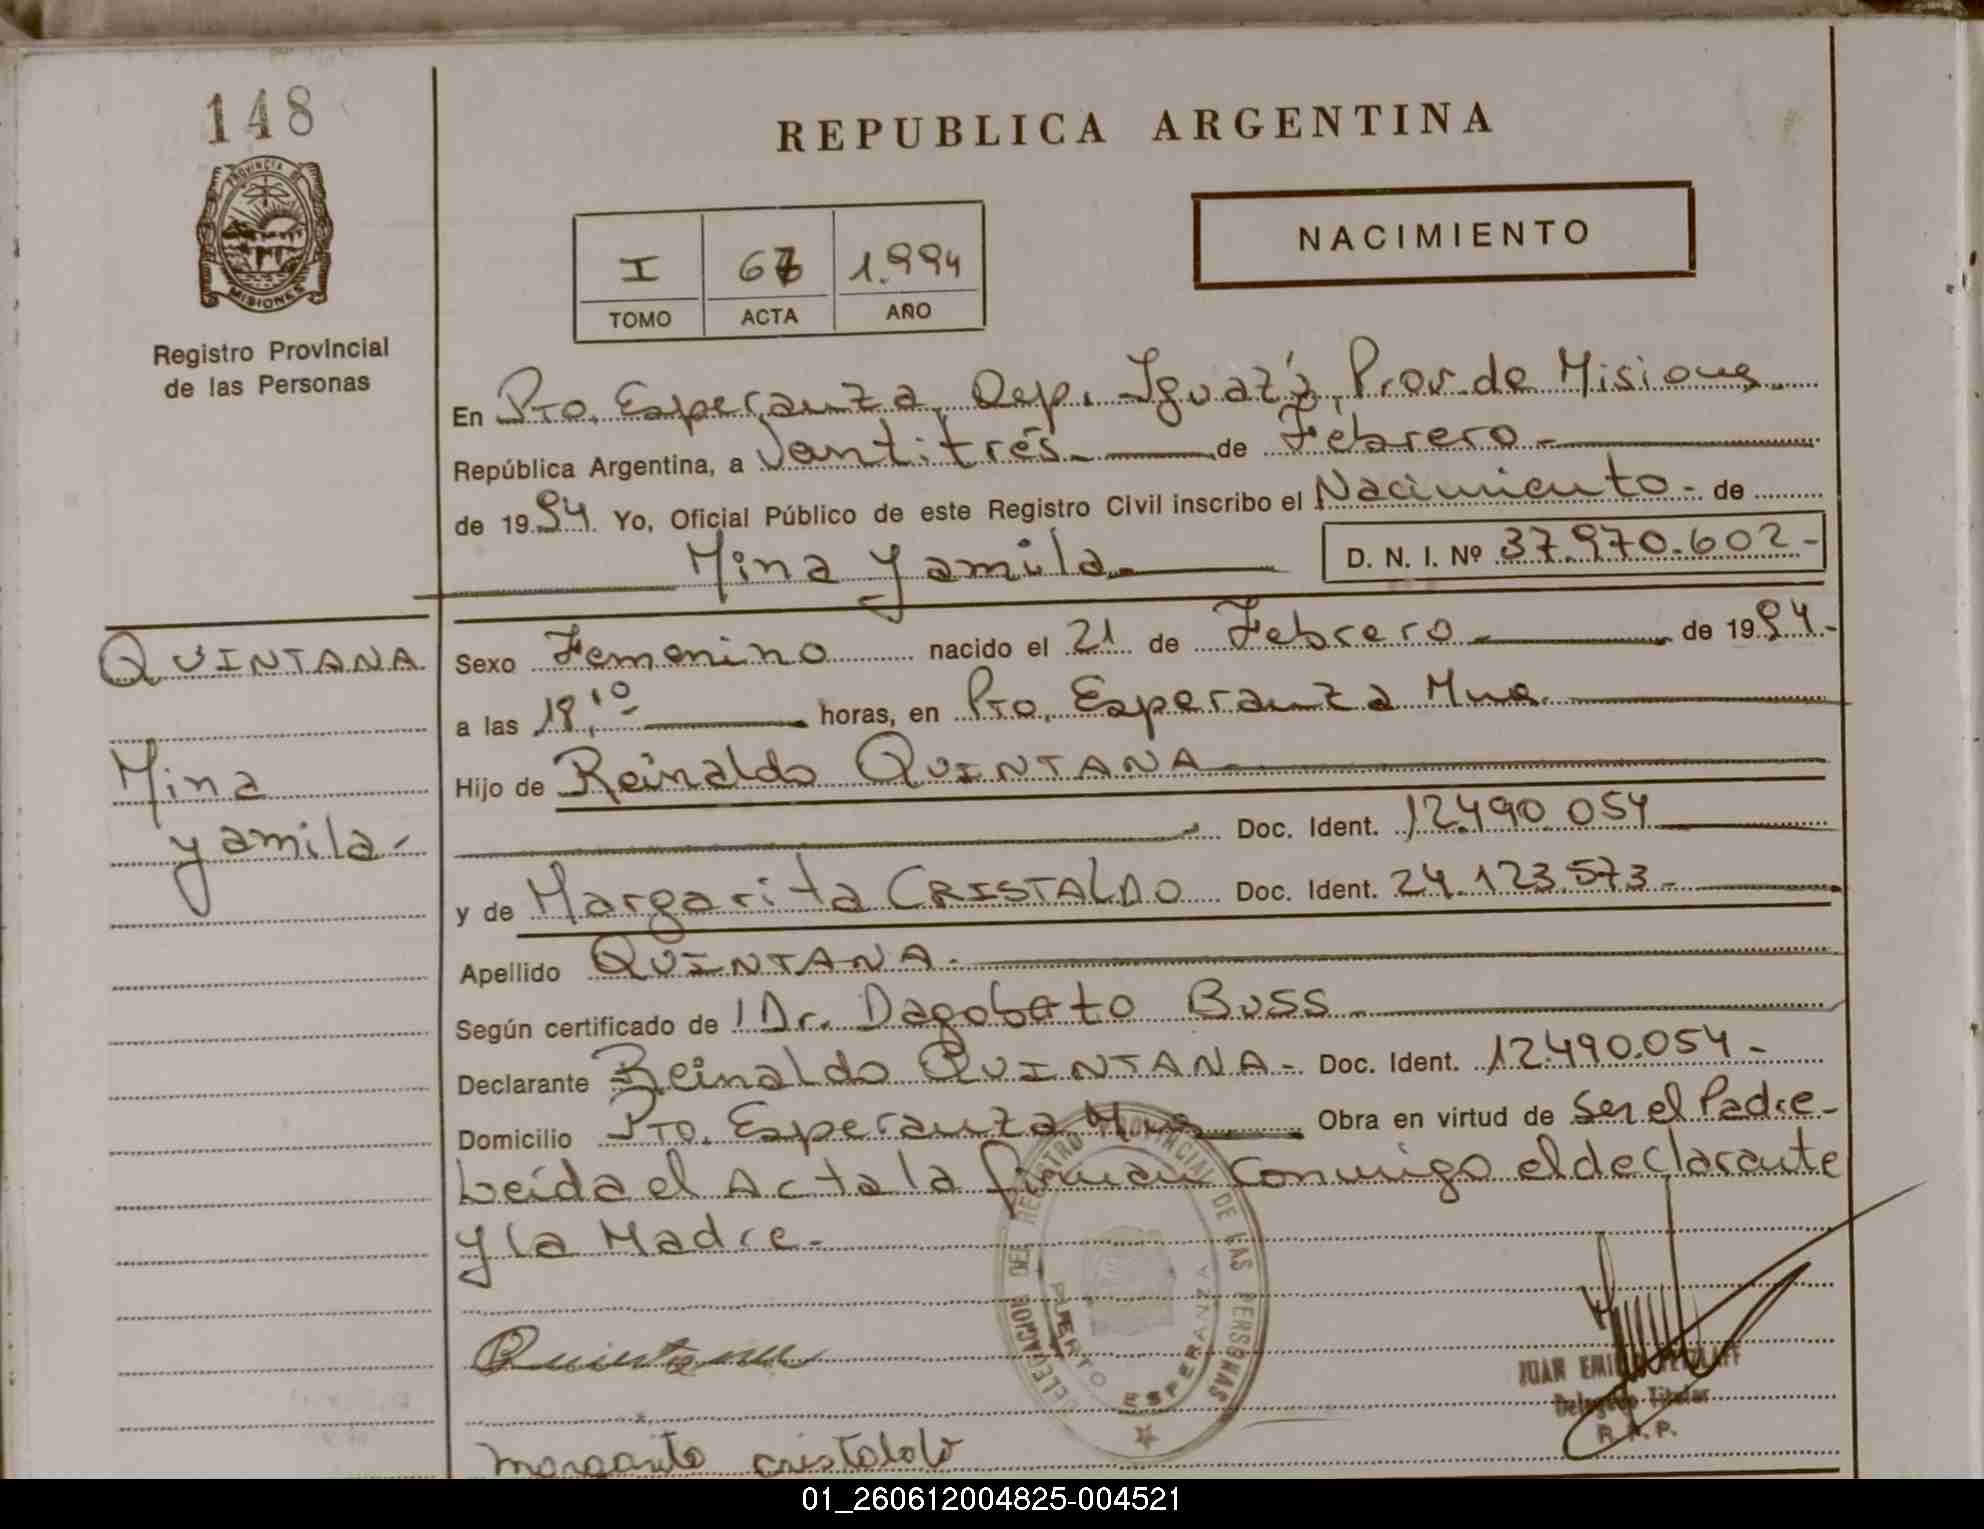 148
PROVINCIA DE
MISIONES
Registro Provincial
de las Personas
REPUBLICA ARGENTINA
NACIMIENTO
I 1.994
TOMO ACTA AÑO
En Pto. Esperanza, Dep. Iguazú, Prov. de Misiones.
República Argentina, a Ventitrés - de Febrero -
de 1994. Yo, Oficial Público de este Registro Civil inscribo el Nacimiento - de
Mina Yamila D. N. I. Nº 37.970.602 -
QUINTANA
Mina
Yamila -
Sexo Femenino nacido el 21 de Febrero - de 1994.-
a las 18,10 horas, en Pto. Esperanza Mnes.
Hijo de Reinaldo QUINTANA -
Doc. Ident. 12.490.054
y de Margarita CRISTALDO Doc. Ident. 24.123.573 -
Apellido QUINTANA. -
Según certificado de Dr. Dagoberto Buss -
Declarante Reinaldo QUINTANA - Doc. Ident. 12.490.054 -
Domicilio Pto. Esperanza Mnes Obra en virtud de Ser el Padre -
Leída el Acta la firman conmigo el declarante
y la Madre. -
DELEGACION DEL REGISTRO PROVINCIAL DE LAS PERSONAS
PUERTO ESPERANZA
Quintana
JUAN
Delegado Titular
R. P. P.
Margarita Cristaldo
01_260612004825-004521